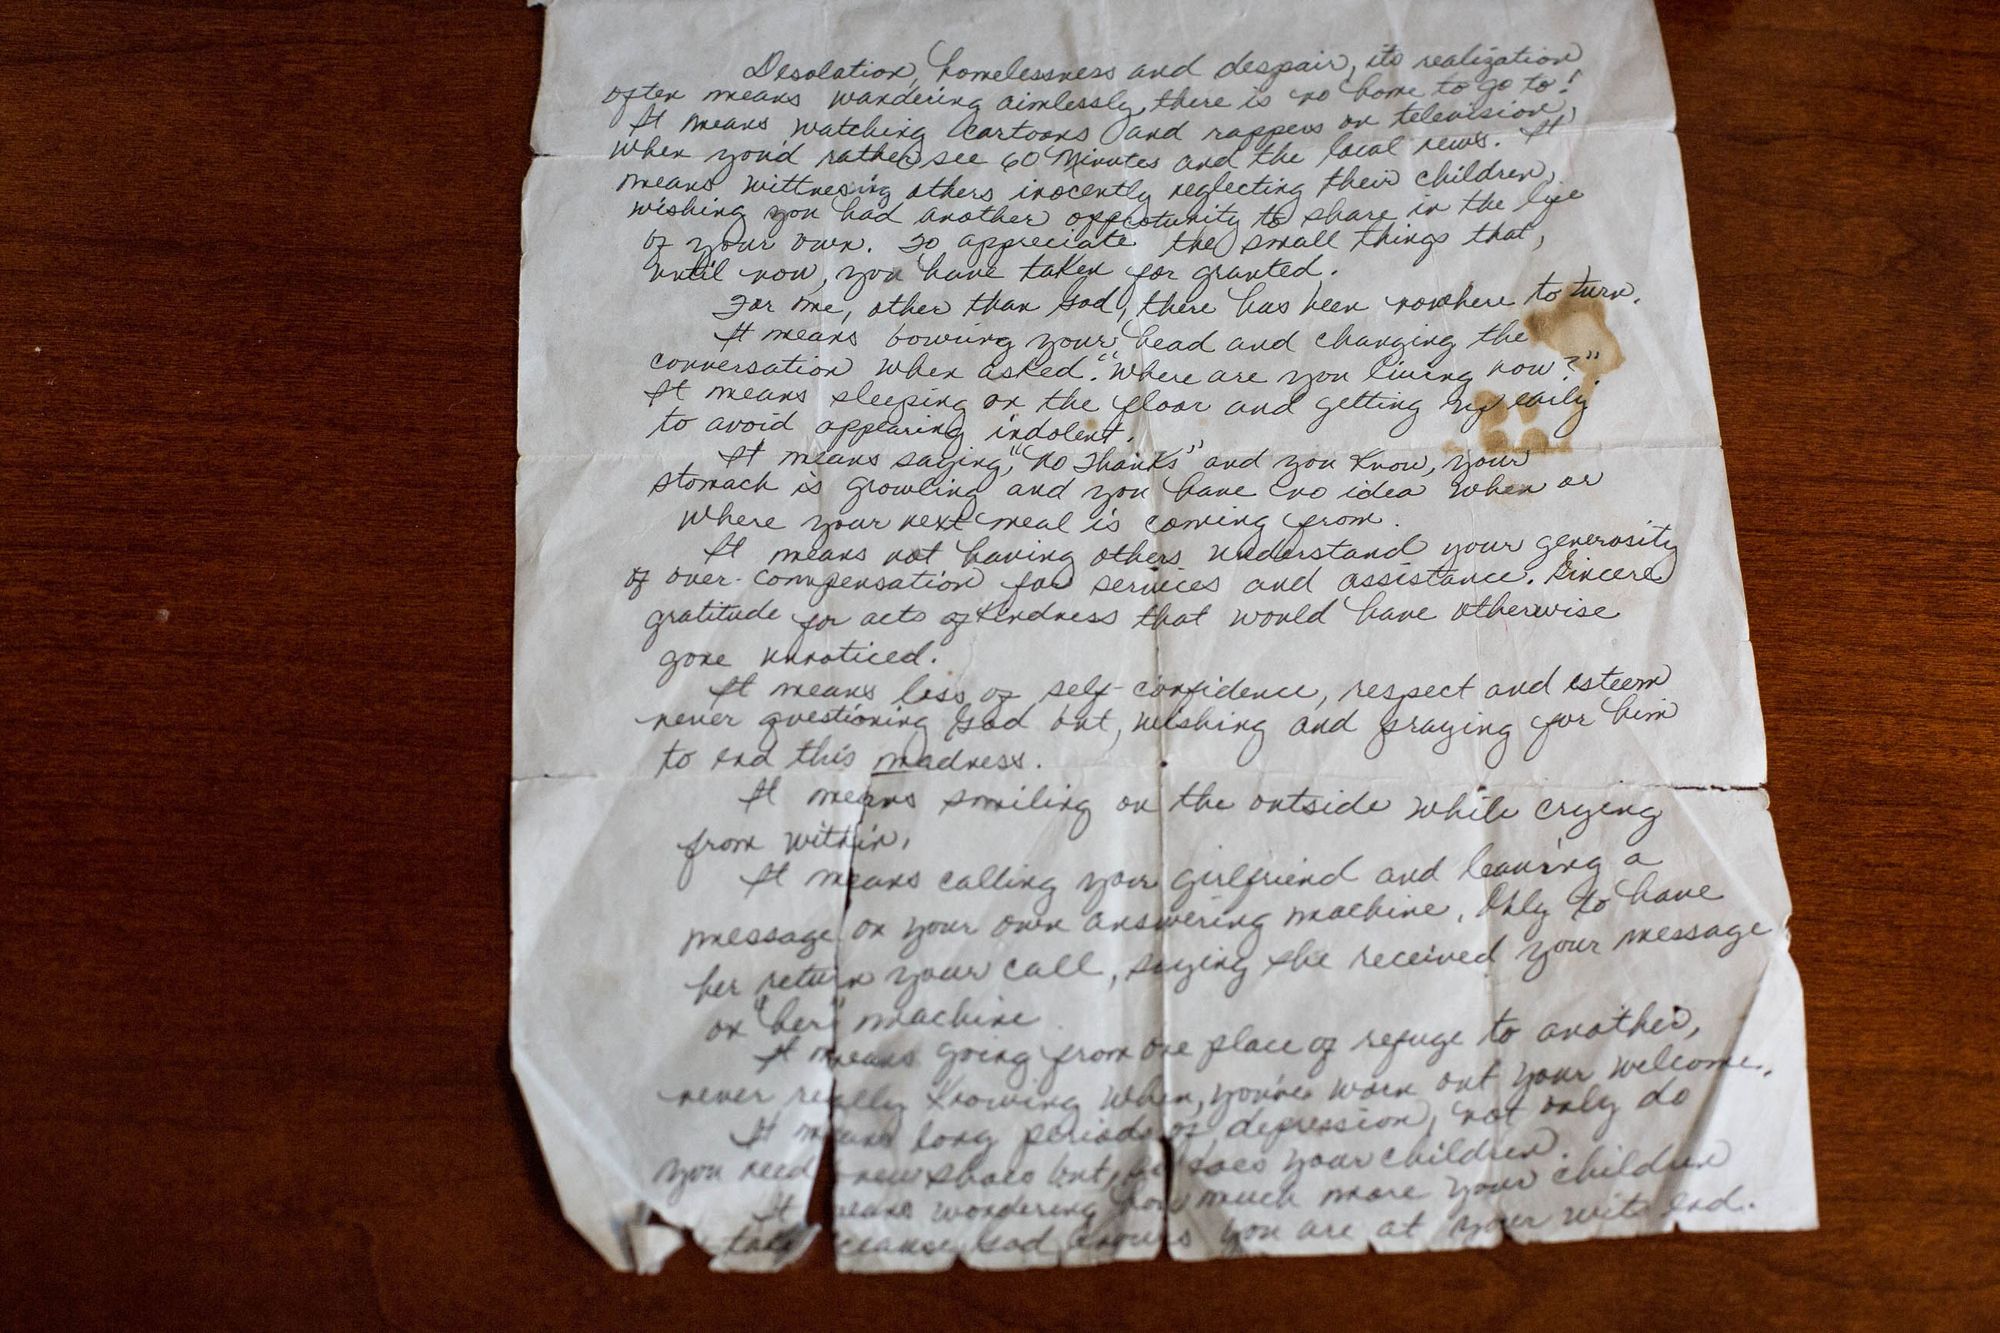 Desolation, homelessness and despair, its realization
often means wandering aimlessly, there is no home to go to!
It means watching cartoons and rappers on television,
when you'd rather see 60 Minutes and the local news. It
means wittnesing others inocently neglecting their children,
wishing you had another opportunity to share in the life
of your own. To appreciate the small things that,
until now, you have taken for granted.
For me, other than God, there has been nowhere to turn.
It means bowing your head and changing the
conversation when asked: "Where are you living now?"
It means sleeping on the floor and getting up early
to avoid appearing indolent.
It means saying, "No Thanks" and you know, your
stomach is growling and you have no idea when or
where your next meal is coming from.
It means not having others understand your generosity
of over-compensation for services and assistance. Sincere
gratitude for acts of kindness that would have otherwise
gone unnoticed.
It means loss of self-confidence, respect and esteem
never questioning God but, wishing and praying for him
to end this madness.
It means smiling on the outside while crying
from within.
It means calling your girlfriend and leaving a
message on your own answering machine. Only to have
her return your call, saying she received your message
on "her" machine
It means going from one place of refuge to another,
never really knowing when, you've worn out your welcome.
It means long periods of depression, not only do
you need new shoes but, so does your children.
It means wondering how much more your children
God knows you are at your wits end.